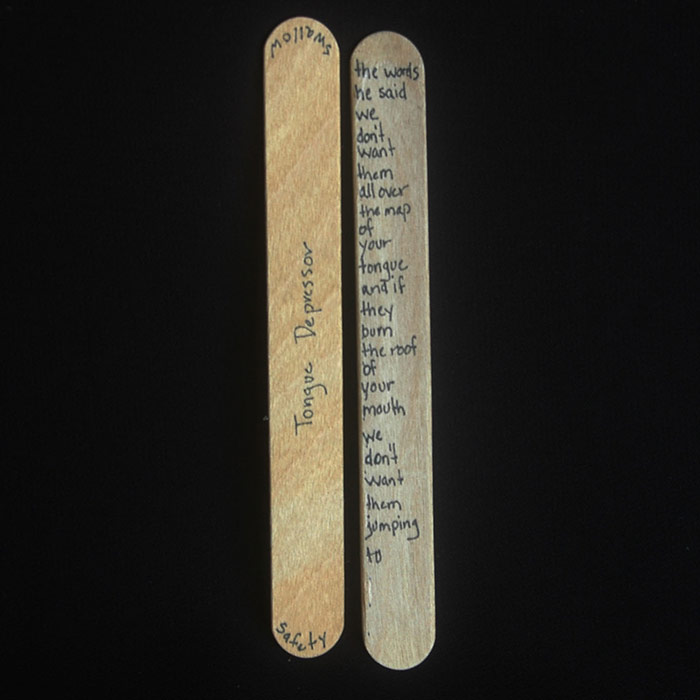 swallow
Tongue Depressor
safety
the words
he said
we
don't
want
them
all over
the map
of
your
tongue
and if
they
burn
the roof
of
your
mouth
we
don't
want
them
jumping
to